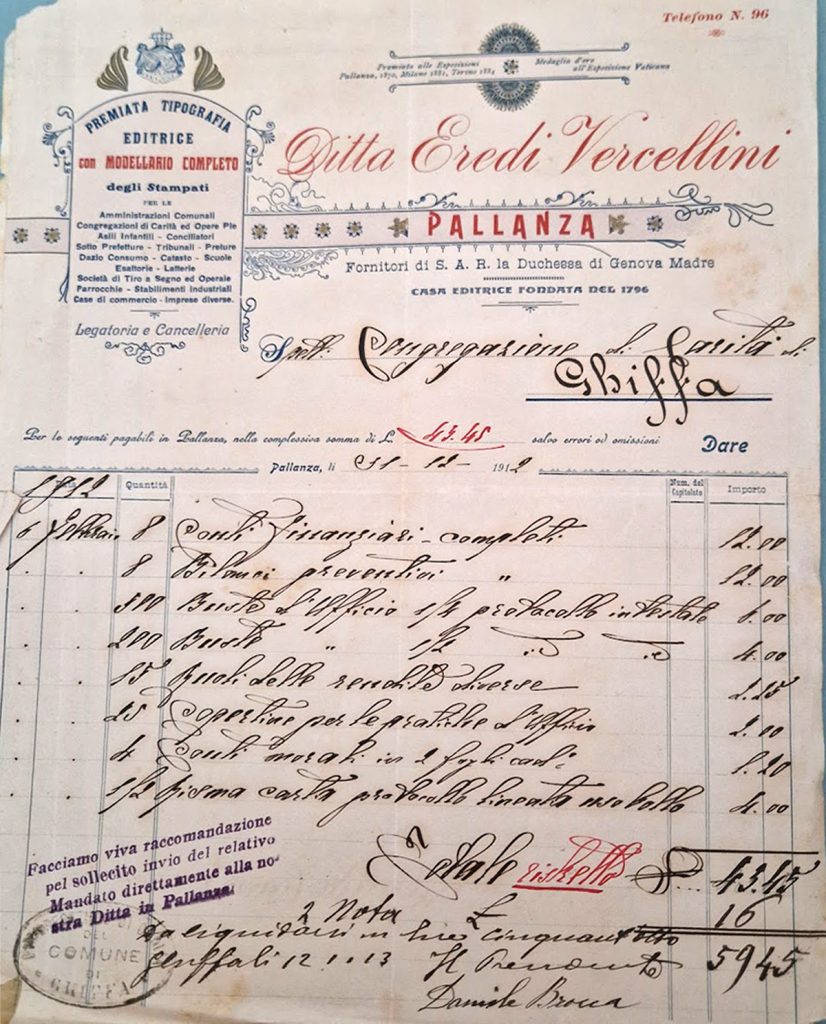 Telefono N. 96
Premiata alle Esposizioni
Pallanza, 1870, Milano 1881, Torino 1884
Medaglia d'oro
all'Esposizione Vaticana
PREMIATA TIPOGRAFIA
EDITRICE
con MODELLARIO COMPLETO
degli Stampati
PER LE
Amministrazioni Comunali
Congregazioni di Carità ed Opere Pie
Asili Infantili - Conciliatori
Sotto Prefetture - Tribunali - Preture
Dazio Consumo - Catasto - Scuole
Esattorie - Latterie
Società di Tiro a Segno ed Operaie
Parrocchie - Stabilimenti Industriali
Case di commercio - Imprese diverse.
Legatoria e Cancelleria
Ditta Eredi Vercellini
PALLANZA
Fornitori di S. A. R. la Duchessa di Genova Madre
CASA EDITRICE FONDATA NEL 1796
Spett. Congregazione di Carità di
Ghiffa
Per le seguenti pagabili in Pallanza, nella complessiva somma di L. 43.45 salvo errori od omissioni Dare
Pallanza, li 31-12-1912
1912 Quantità Num. del Capitolato Importo
6 Febbraio 8 Conti Finanziari - completi 12.00
8 Bilanci preventivi " 12.00
500 Buste d'Ufficio 1/4 protocollo intestate 6.00
200 Buste " 1/2 " " 4.00
15 Ruoli delle rendite diverse 2.25
25 Copertine per le pratiche d'Ufficio 2.00
4 Conti morali in 2 fogli cad. 1.20
1/2 Risma carta protocollo lineata uso bollo 4.00
Totale ristretto £ 43.45
2 Nota £ 16
Da liquidarsi in lire cinquantotto 5945
12.1.13 Il Presidente
Daniele Brocca
Facciamo viva raccomandazione
pel sollecito invio del relativo
Mandato direttamente alla no-
stra Ditta in Pallanza.
DEL
COMUNE
DI
GHIFFA